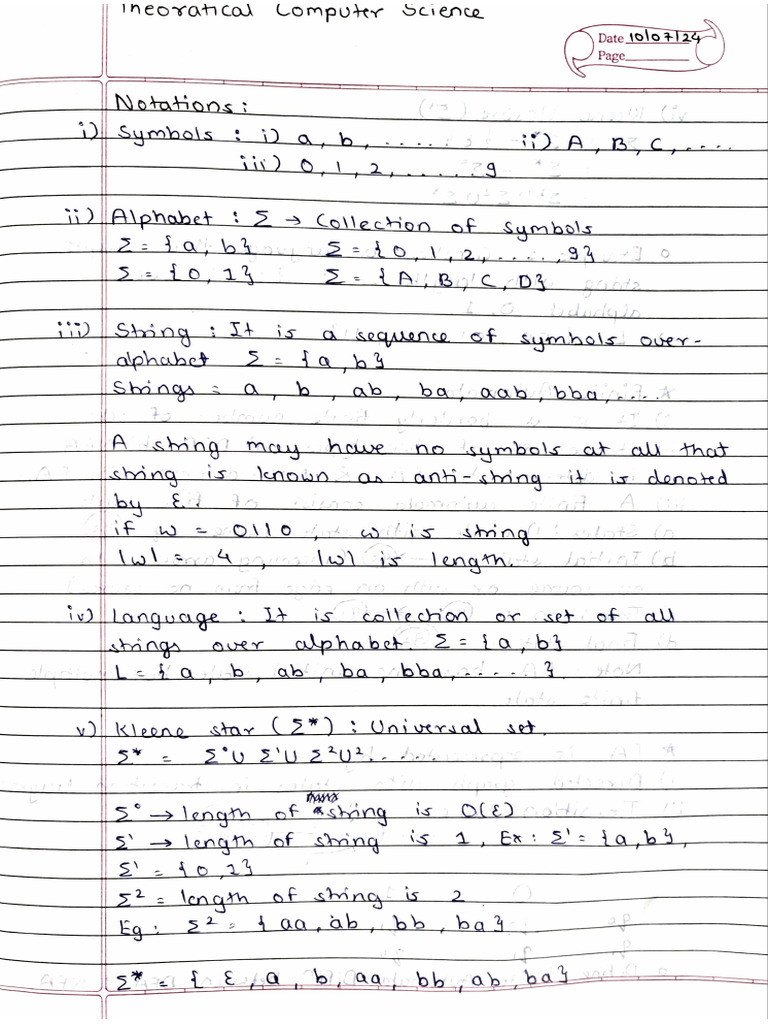 Theoratical Computer Science
Date 10/07/24
Page
Notations:
i) Symbols : i) a, b, ...... ii) A, B, C, ....
iii) 0, 1, 2, ...... 9
ii) Alphabet : Σ → Collection of symbols
Σ = {a, b} Σ = {0, 1, 2, ....., 9}
Σ = {0, 1} Σ = {A, B, C, D}
iii) String : It is a sequence of symbols over-
alphabet Σ = {a, b}
Strings = a, b, ab, ba, aab, bba, ....
A string may have no symbols at all that
string is known as anti-string it is denoted
by ε.
if w = 0110, w is string
|w| = 4, |w| is length.
iv) Language : It is collection or set of all
strings over alphabet. Σ = {a, b}
L = {a, b, ab, ba, bba, ..... }.
v) Kleene star (Σ*) : Universal set.
Σ* = Σ⁰U Σ¹U Σ²U²......
Σ⁰ → length of string is 0(ε)
Σ¹ → length of string is 1, Ex: Σ¹ = {a, b},
Σ¹ = {0, 1}
Σ² = length of string is 2
Eg: Σ² = {aa, ab, bb, ba}
Σ* = {ε, a, b, aa, bb, ab, ba}